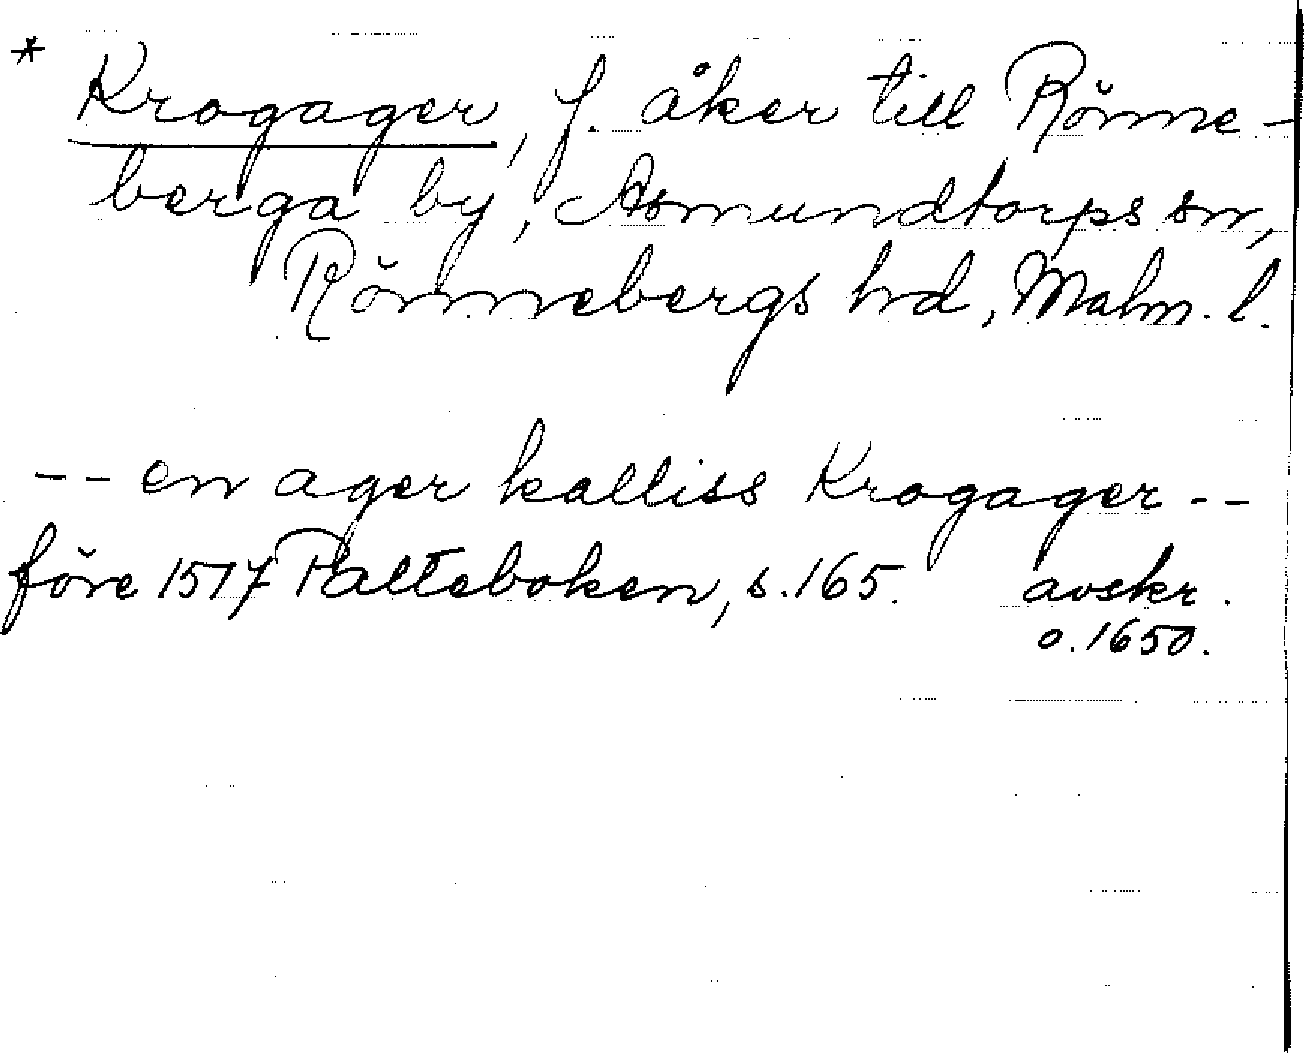 * Krogager, f. åker till Rönne-
berga by, Asmundtorps sn,
Rönnebergs hd, Malm. l.
-- en ager kalliss Krogager --
före 1517 Palteboken, s. 165. avskr.
o. 1650.